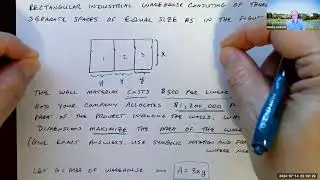 RECTANGULAR INDUSTRIAL WAREHOUSE CONSISTING OF THREE
SEPARATE SPACES OF EQUAL SIZE AS IN THE FIGURE
1 2 3 x
y y y
THE WALL MATERIAL COSTS $500 PER LINEAR
AND YOUR COMPANY ALLOCATES $1,200,000
PART OF THE PROJECT INVOLVING THE WALLS, WH
DIMENSIONS MAXIMIZE THE AREA OF THE WARE
(GIVE EXACT ANSWERS, USE SYMBOLIC NOTATION AND FO
WHERE NE
LET A = AREA OF WAREHOUSE A = 3xy